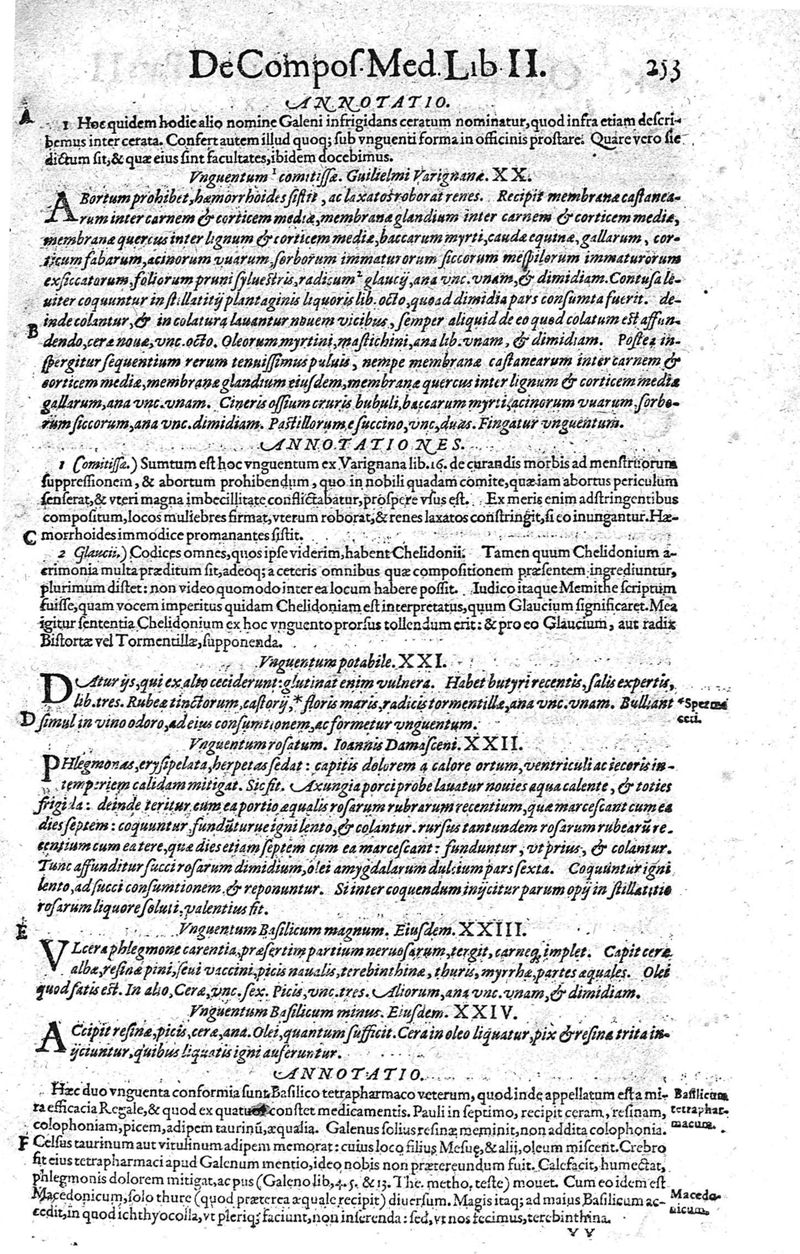 De Compos. Med. Lib. II. 253
ANNOTATIO.
A
1 Hoc quidem hodie alio nomine Galeni infrigidans ceratum nominatur, quod infra etiam describemus
bemus inter cerata. Confert autem illud quoq; sub vnguenti forma in officinis prostare. Quare vero sic
dictum sit, & quæ eius sint facultates, ibidem docebimus.
Vnguentum ¹ comitissæ. Guilielmi Varignanæ. XX.
ABortum prohibet, hæmorrhoides sistit, ac laxatos roborat renes. Recipit membranæ castanea-
rum inter carnem & corticem mediæ, membranæ glandium inter carnem & corticem mediæ,
membranæ quercus inter lignum & corticem mediæ, baccarum myrti, caudæ equinæ, gallarum, cor-
ticum fabarum, acinorum vuarum, sorborum immaturorum siccorum mespilorum immaturorum
exsiccatorum, foliorum pruni syluestris, radicum ² glaucij, ana vnc. vnam, & dimidiam. Contusa le-
uiter coquuntur in stillatitij plantaginis liquoris lib. octo, quoad dimidia pars consumta fuerit. de-
B
inde colantur, & in colatura lauantur nouem vicibus, semper aliquid de eo quod colatum est affun-
dendo, ceræ nouæ, vnc. octo. Oleorum myrtini, mastichini, ana lib. vnam, & dimidiam. Postea in-
spergitur sequentium rerum tenuissimus puluis, nempe membranæ castanearum inter carnem &
corticem mediæ, membranæ glandium eiusdem, membranæ quercus inter lignum & corticem mediæ
gallarum, ana vnc. vnam. Cineris ossium cruris bubuli, baccarum myrti, acinorum vuarum, sorbo-
rum siccorum, ana vnc. dimidiam. Pastillorum e succino, vnc, duas. Fingatur vnguentum.
ANNOTATIONES.
1 Comitissæ.) Sumtum est hoc vnguentum ex Varignana lib. 16. de curandis morbis ad menstruorum
suppressionem, & abortum prohibendum, quo in nobili quadam comite, quæ iam abortus periculum
senserat, & vteri magna imbecillitate conflictabatur, prospere vsus est. Ex meris enim adstringentibus
compositum, locos muliebres firmat, vterum roborat, & renes laxatos constringit, si eo inungantur. Hæ-
C
morrhoides immodice promanantes sistit.
2 Glaucij.) Codices omnes, quos ipse viderim, habent Chelidonii. Tamen quum Chelidonium a-
crimonia multa præditum sit, adeoq; a ceteris omnibus quæ compositionem præsentem ingrediuntur,
plurimum distet: non video quomodo inter ea locum habere possit. Iudico itaque Memithe scriptum
fuisse, quam vocem imperitus quidam Chelidoniam est interpretatus, quum Glaucium significaret. Mea
igitur sententia Chelidonium ex hoc vnguento prorsus tollendum erit: & pro eo Glaucium, aut radix
Bistortæ vel Tormentillæ, supponenda.
Vnguentum potabile. XXI.
DAtur ijs, qui ex alto ceciderunt: glutinat enim vulnera. Habet butyri recentis, salis expertis,
lib. tres. Rubeæ tinctorum, castorij, * floris maris, radicis tormentillæ, ana vnc. vnam. Bulliant
* Sperma
ceti.
D
simul in vino odoro, ad eius consumtionem, ac formetur vnguentum.
Vnguentum rosatum. Ioannis Damasceni. XXII.
PHlegmonas, erysipelata, herpetas sedat: capitis dolorem a calore ortum, ventriculi ac iecoris in-
temperiem calidam mitigat. Sic fit. Axungia porci probe lauatur nouies aqua calente, & toties
frigida: deinde teritur cum ea portio æqualis rosarum rubrarum recentium, quæ marcescant cum ea
dies septem: coquuntur, funduntur ue igni lento, & colantur. rursus tantundem rosarum rubearū re-
centium cum ea tere, quæ dies etiam septem cum ea marcescant: funduntur, vt prius, & colantur.
Tunc affunditur succi rosarum dimidium, olei amygdalarum dulcium pars sexta. Coquuntur igni
lento, ad succi consumtionem, & reponuntur. Si inter coquendum inijcitur parum opij in stillatitio
rosarum liquore soluti, valentius fit.
E
Vnguentum Basilicum magnum. Eiusdem. XXIII.
VLcera phlegmone carentia, præsertim partium neruosarum, tergit, carneq; implet. Capit ceræ
albæ, resinæ pini, seui vaccini, picis naualis, terebinthinæ, thuris, myrrhæ, partes æquales. Olei
quod satis est. In alio, Ceræ, vnc. sex. Picis, vnc. tres. Aliorum, ana vnc. vnam, & dimidiam.
Vnguentum Basilicum minus. Eiusdem. XXIV.
ACcipit resinæ, picis, ceræ, ana. Olei, quantum sufficit. Cera in oleo liquatur, pix & resina trita in-
ijciuntur. quibus liquatis igni auferuntur.
ANNOTATIO.
Hæc duo vnguenta conformia sunt Basilico tetrapharmaco veterum, quod inde appellatum est a mi-
ra efficacia Regale, & quod ex quatuor constet medicamentis. Pauli in septimo, recipit ceram, resinam,
colophoniam, picem, adipem taurinū, æqualia. Galenus solius resinæ meminit, non addita colophonia.
Basilicum
tetraphar-
macum.
F
Celsus taurinum aut vitulinum adipem memorat: cuius loco filius Mesuę, & alij, oleum miscent. Crebro
fit eius tetrapharmaci apud Galenum mentio, ideo nobis non prætereundum fuit. Calefacit, humectat,
phlegmonis dolorem mitigat, ac pus (Galeno lib, 4. 5. & 13. The. metho, teste) mouet. Cum eo idem est
Macedonicum, solo thure (quod præterea æquale recipit) diuersum. Magis itaq; ad maius Basilicum ac-
cedit, in quod ichthyocolla, vt pleriq; faciunt, non inserenda: sed, vt nos fecimus, terebinthina.
Macedo-
nicum.
YY